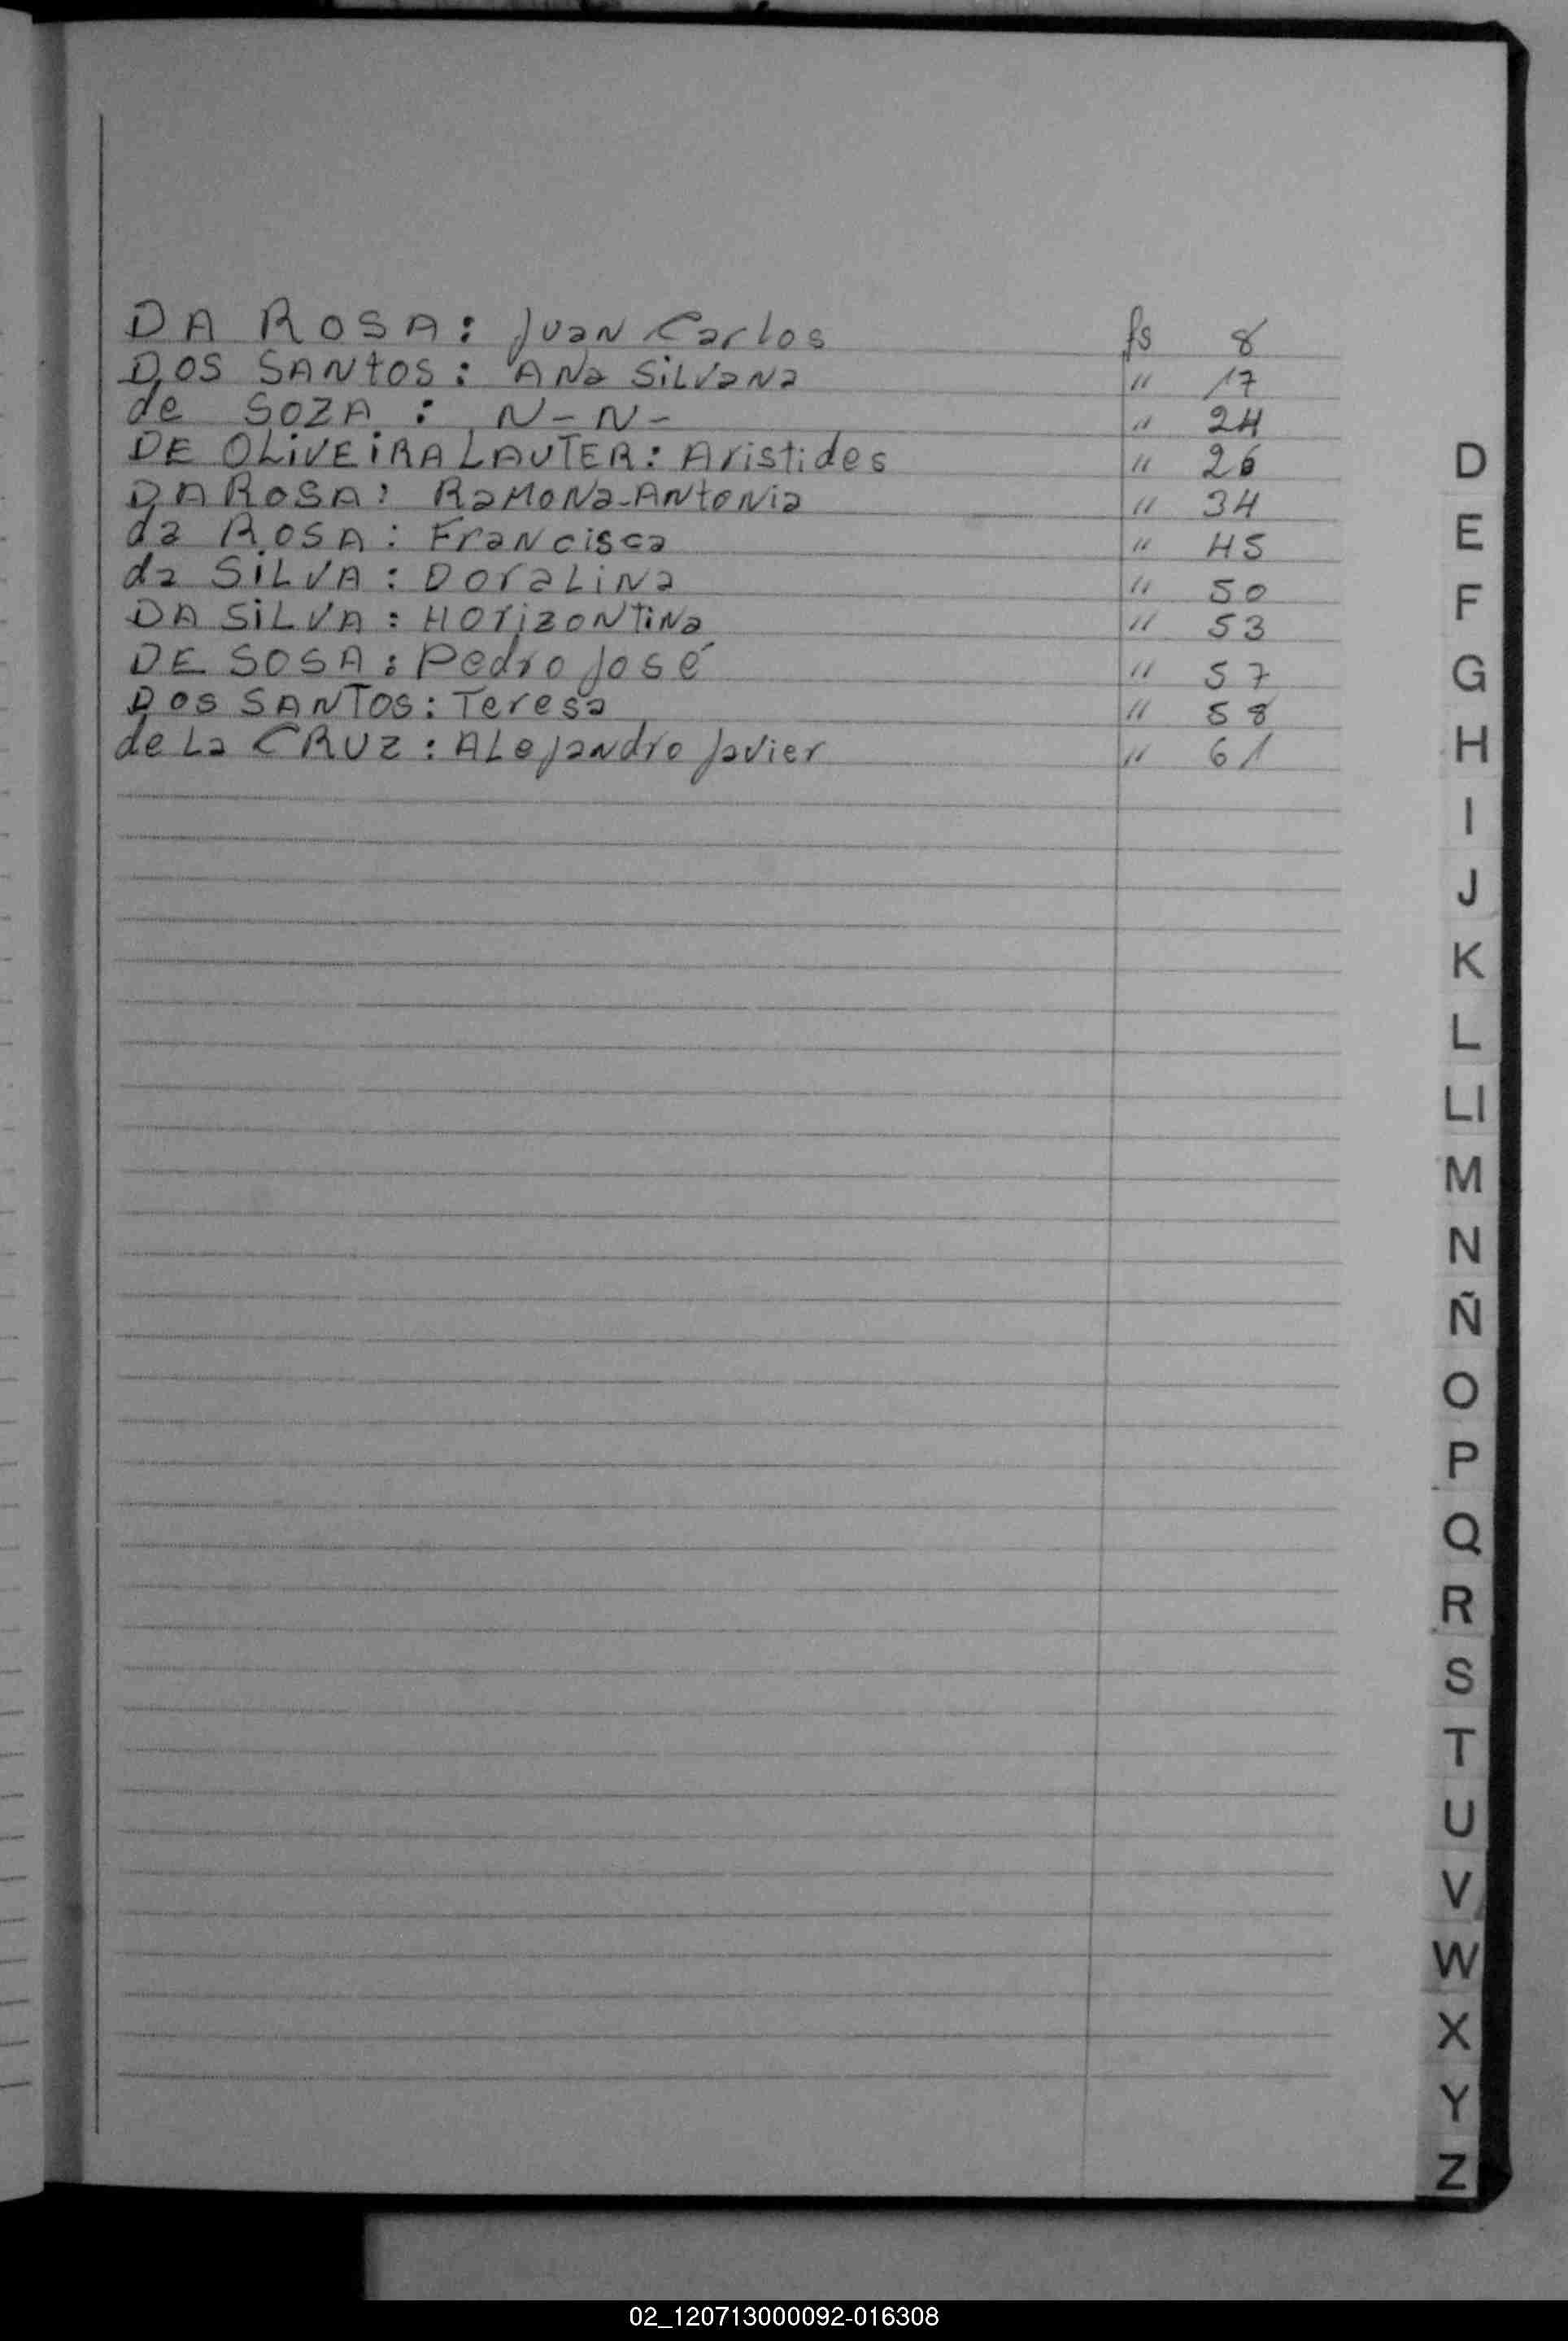 DA ROSA: Juan Carlos fs 8
DOS SANtOS: ANa SiLVaNa " 17
de SOZA: N-N- " 24
DE OLiVEiRA LAUTER: Aristides " 26
DA ROSA: RaMONa-ANtoNia " 34
da ROSA: FraNcisca " 45
da SiLVA: DoraLiNa " 50
DA SiLVA: HOrizONTiNa " 53
DE SOSA: Pedro José " 57
DOS SANTOS: Teresa " 58
de La CRUZ: ALejandro Javier " 61
D
E
F
G
H
I
J
K
L
Ll
M
N
Ñ
O
P
Q
R
S
T
U
V
W
X
Y
Z
02_120713000092-016308